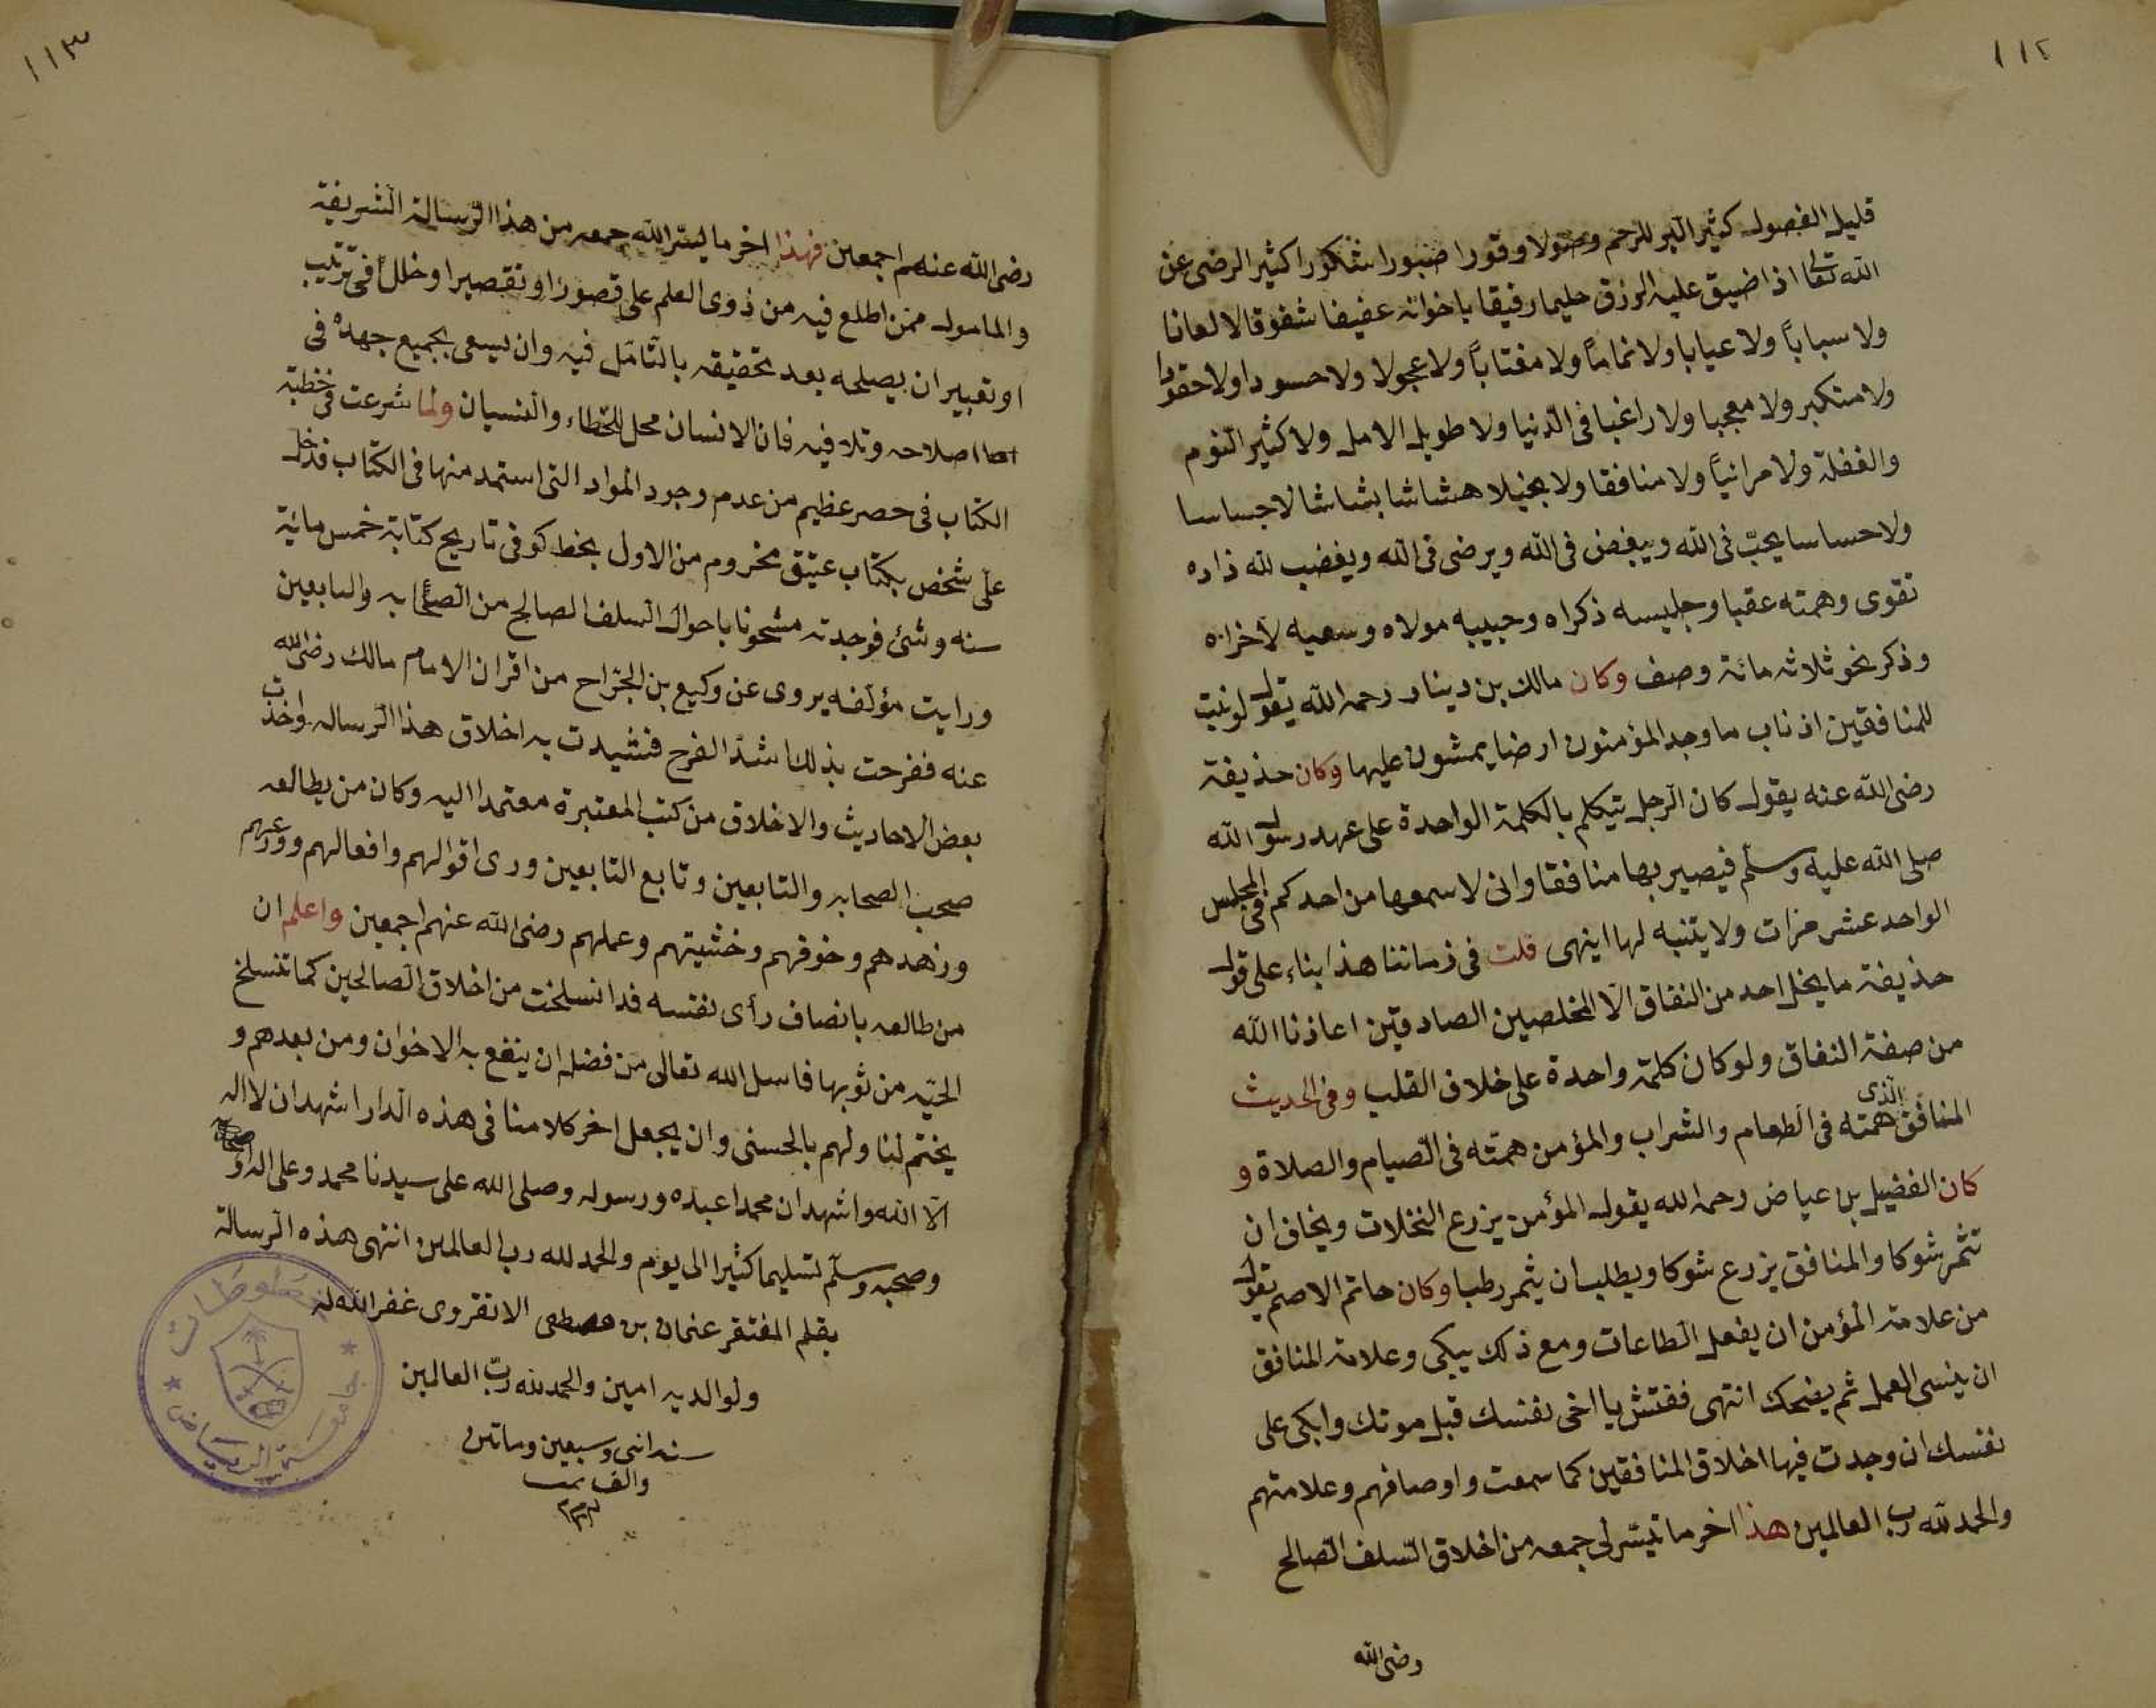 ١١٢
قليل الفضول كثير البر للرحم وصولا وقورا صبورا شكورا كثير الرضى عن
الله تعالى اذا ضيق عليه الرزق حليما رفيقا باخوانه عفيفا شفوقا لا لعانا
ولا سباباً ولا عيابا ولا نماماً ولا مغتاباً ولا عجولا ولا حسودا ولا حقودا
ولا متكبر ولا معجبا ولا راغبا فى الدنيا ولا طويل الامل ولا كثير النوم
والغفلة ولا مرائياً ولا منافقا ولا بخيلا هشاشا بشاشا لا جساسا
ولا حساسا يحبّ فى الله ويبغض فى الله ويرضى فى الله ويغضب لله زاده
تقوى وهمته عقبا وجليسه ذكراه وحبيبه مولاه وسعيه لاخراه
وذكر نحو ثلاثه مائة وصف وكان مالك بن دينار رحمه الله يقول لو نبت
للمنافقين اذناب ما وجد المؤمنون ارضا يمشون عليها وكان حذيفة
رضى الله عنه يقول كان الرجل يتيكلم بالكلمة الواحدة على عهد رسول الله
صلى الله عليه وسلم فيصير بها منافقا وانى لاسمعها من احدكم فى المجلس
الواحد عشر مرات ولا يتنبه لها اينهى قلت فى زماننا هذا بناء على قول
حذيفة ما يخل احد من النفاق الا المخلصين الصادقين اعاذنا الله
من صفة النفاق ولو كان كلمة واحدة على خلاف القلب وفى الحديث
المنافق الذى همته فى الطعام والشراب والمؤمن همته فى الصيام والصلاة و
كان الفضيل بن عياض رحمه الله يقول المؤمن يزرع النخلات ويخاف ان
تثمر شوكا والمنافق يزرع شوكا ويطلب ان يثمر رطبا وكان حاتم الاصم يقول
من علامة المؤمن ان يفعل الطاعات ومع ذلك يبكى وعلامة المنافق
ان ينسى العمل ثم يضحك انتهى ففتش يا اخى نفسك قبل موتك وابكى على
نفسك ان وجدت فيها اخلاق المنافقين كما سمعت واوصافهم وعلامتهم
والحمد لله رب العالمين هذا اخر ما تيسّر لى جمعه من اخلاق السلف الصالح
رضى الله
١١٣
رضى الله عنهم اجمعين فهذا اخر ما ليسّر الله جمعه من هذا الرسالة الشريفة
والمامول ممن اطلع فيه من ذوى العلم على قصورا او تقصيرا او خللاً فى ترتيب
او تعبير ان يصلحه بعد تحقيقه بالتأمل فيه وان يسعى بجميع جهده فى
اصلاحه وتلافيه فان الانسان محل للخطاء والنسيان ولما شرعت فى خطبة
الكتاب فى حصر عظيم من عدم وجود المواد التى استمد منها فى الكتاب فدخل
علىّ شخص بكتاب عتيق مخروم من الاول بخط كوفى تاريخ كتابة خمس مائة
سنه وشئ فوجدته مشحونا باحوال السلف الصالح من الصحابه والتابعين
ورايت مؤلفه يروى عن وكيع بن الجراح من اقران الامام مالك رضى الله
عنه ففرحت بذلك اشدّ الفرح فشيدت به اخلاق هذا الرساله واخذت
بعض الاحاديث والاخلاق من كتب المعتبرة معتمدا اليه وكان من يطالعه
صحب الصحابه والتابعين وتابع التابعين ورى اقوالهم وافعالهم وورعهم
وزهدهم وخوفهم وخشيتهم وعملهم رضى الله عنهم اجمعين واعلم ان
من طالعه بانصاف رأى نفسه قد انسلخت من اخلاق الصالحين كما تنسلخ
الحيّه من ثوبها فاسل الله تعالى من فضله ان ينفع به الاخوان ومن بعدهم و
يختم لنا ولهم بالحسنى وان يجعل اخر كلامنا فى هذه الدار اشهد ان لا اله
الا الله واشهد ان محمدا عبده ورسوله وصلى الله على سيدنا محمد وعلى اله
وصحبه وسلّم تسليما كثيرا الى يوم والحمد لله رب العالمين انتهى هذه الرسالة
بقلم المفتقر عثمان بن مصطفى الانقروى غفر الله له
ولوالديه امين والحمد لله ربّ العالمين
سنه اثنى وسبعين وماتين
والف تمت
جامعة الرياض
مخطوطات